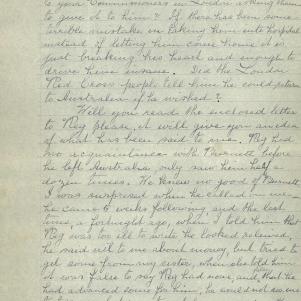 to your Commissioners in London asking them
to give it to him & If there has been some
terrible mistake in taking him into hospital
instead of letting him come home it is
just breaking his heart and enough to
drive him insane. Did the London
Red Cross people tell him he could return
to Australia if he wished?
Will you read the enclosed letter
to Reg please, it will give you an idea
of what has been said to me. Reg had
no acquaintance with Burnett before
he left Australia, only saw him half a
dozen times. We know no good of Burnett
I was surprised when he called
he came 6 weeks following and the last
time, a fortnight ago, when I told him that
Reg was too ill to write he looked relieved,
he said nil to me about money but tried to
get some from my sister, when she told him
it was false to say Reg had none, and that he
had advanced some for him, he could not